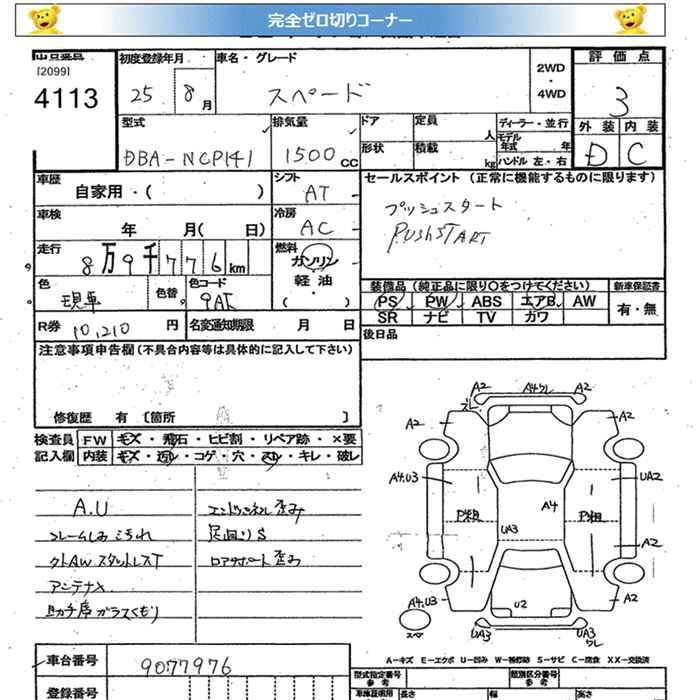 完全ゼロ切りコーナー
出品番号
[2099]
4113
初度登録年月
25年 8月
車名・グレード
スペード
2WD
・
4WD
評価点
3
外装 内装
D C
型式
DBA-NCP141
排気量
1500cc
ドア
定員
人
ディーラー・並行
モデル年式 年
形状
積載
kg
ハンドル 左・右
車歴
自家用・( )
シフト
AT
セールスポイント (正常に機能するものに限ります)
プッシュスタート
PUSHSTART
車検
年 月( 日)
冷房
AC
走行
8万9千776km
燃料
ガソリン
軽油
・( )
色
現車
色替
色コード
9AI
装備品(純正品に限り○をつけてください)
新車保証書
PS PW ABS エアB AW
SR ナビ TV カワ
有・無
R券 10,210 円
名変通知期限 月 日
後日品
注意事項申告欄(不具合内容等は具体的に記入して下さい)
修復歴 有 〔箇所 〕
検査員記入欄
FW キズ・飛石・ヒビ割・リペア跡・×要
内装 キズ・汚レ・コゲ・穴・スレ・キレ・破レ
A.U
フレームしみ こげれ
クトAW スタットレスT
アンテナX
エンドパネル歪み
足回りS
ロアサポート歪み
A2 A4ワレ A2
ズレ
A2 A2
A4.U3 UA2
P粗 A4 P粗
UA3 A2
A4.U3 U2 A2
スペア UA3 UA3
ワレ
A-キズ E-エクボ U-凹み W-補修跡 S-サビ C-腐食 XX-交換済
車台番号
9077976
型式指定番号
参考
類別区分番号
参考
登録番号
車庫証明用
長さ
幅
高さ